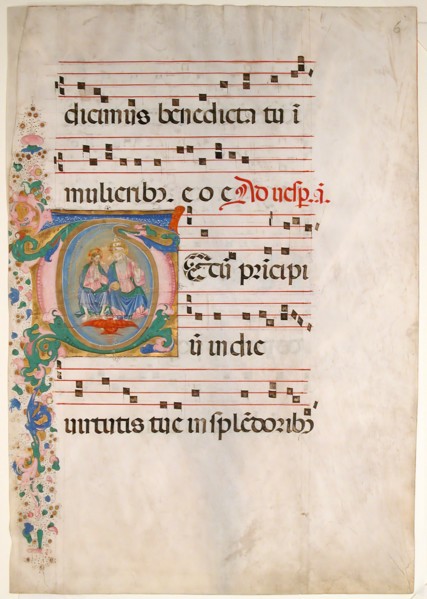 6
dicimus benedicta tu ī
mulieribꝫ. e o e Ad uesp. ā.
Tecū prīcipi
ū in die
uirtutis tue in splēdoribꝫ